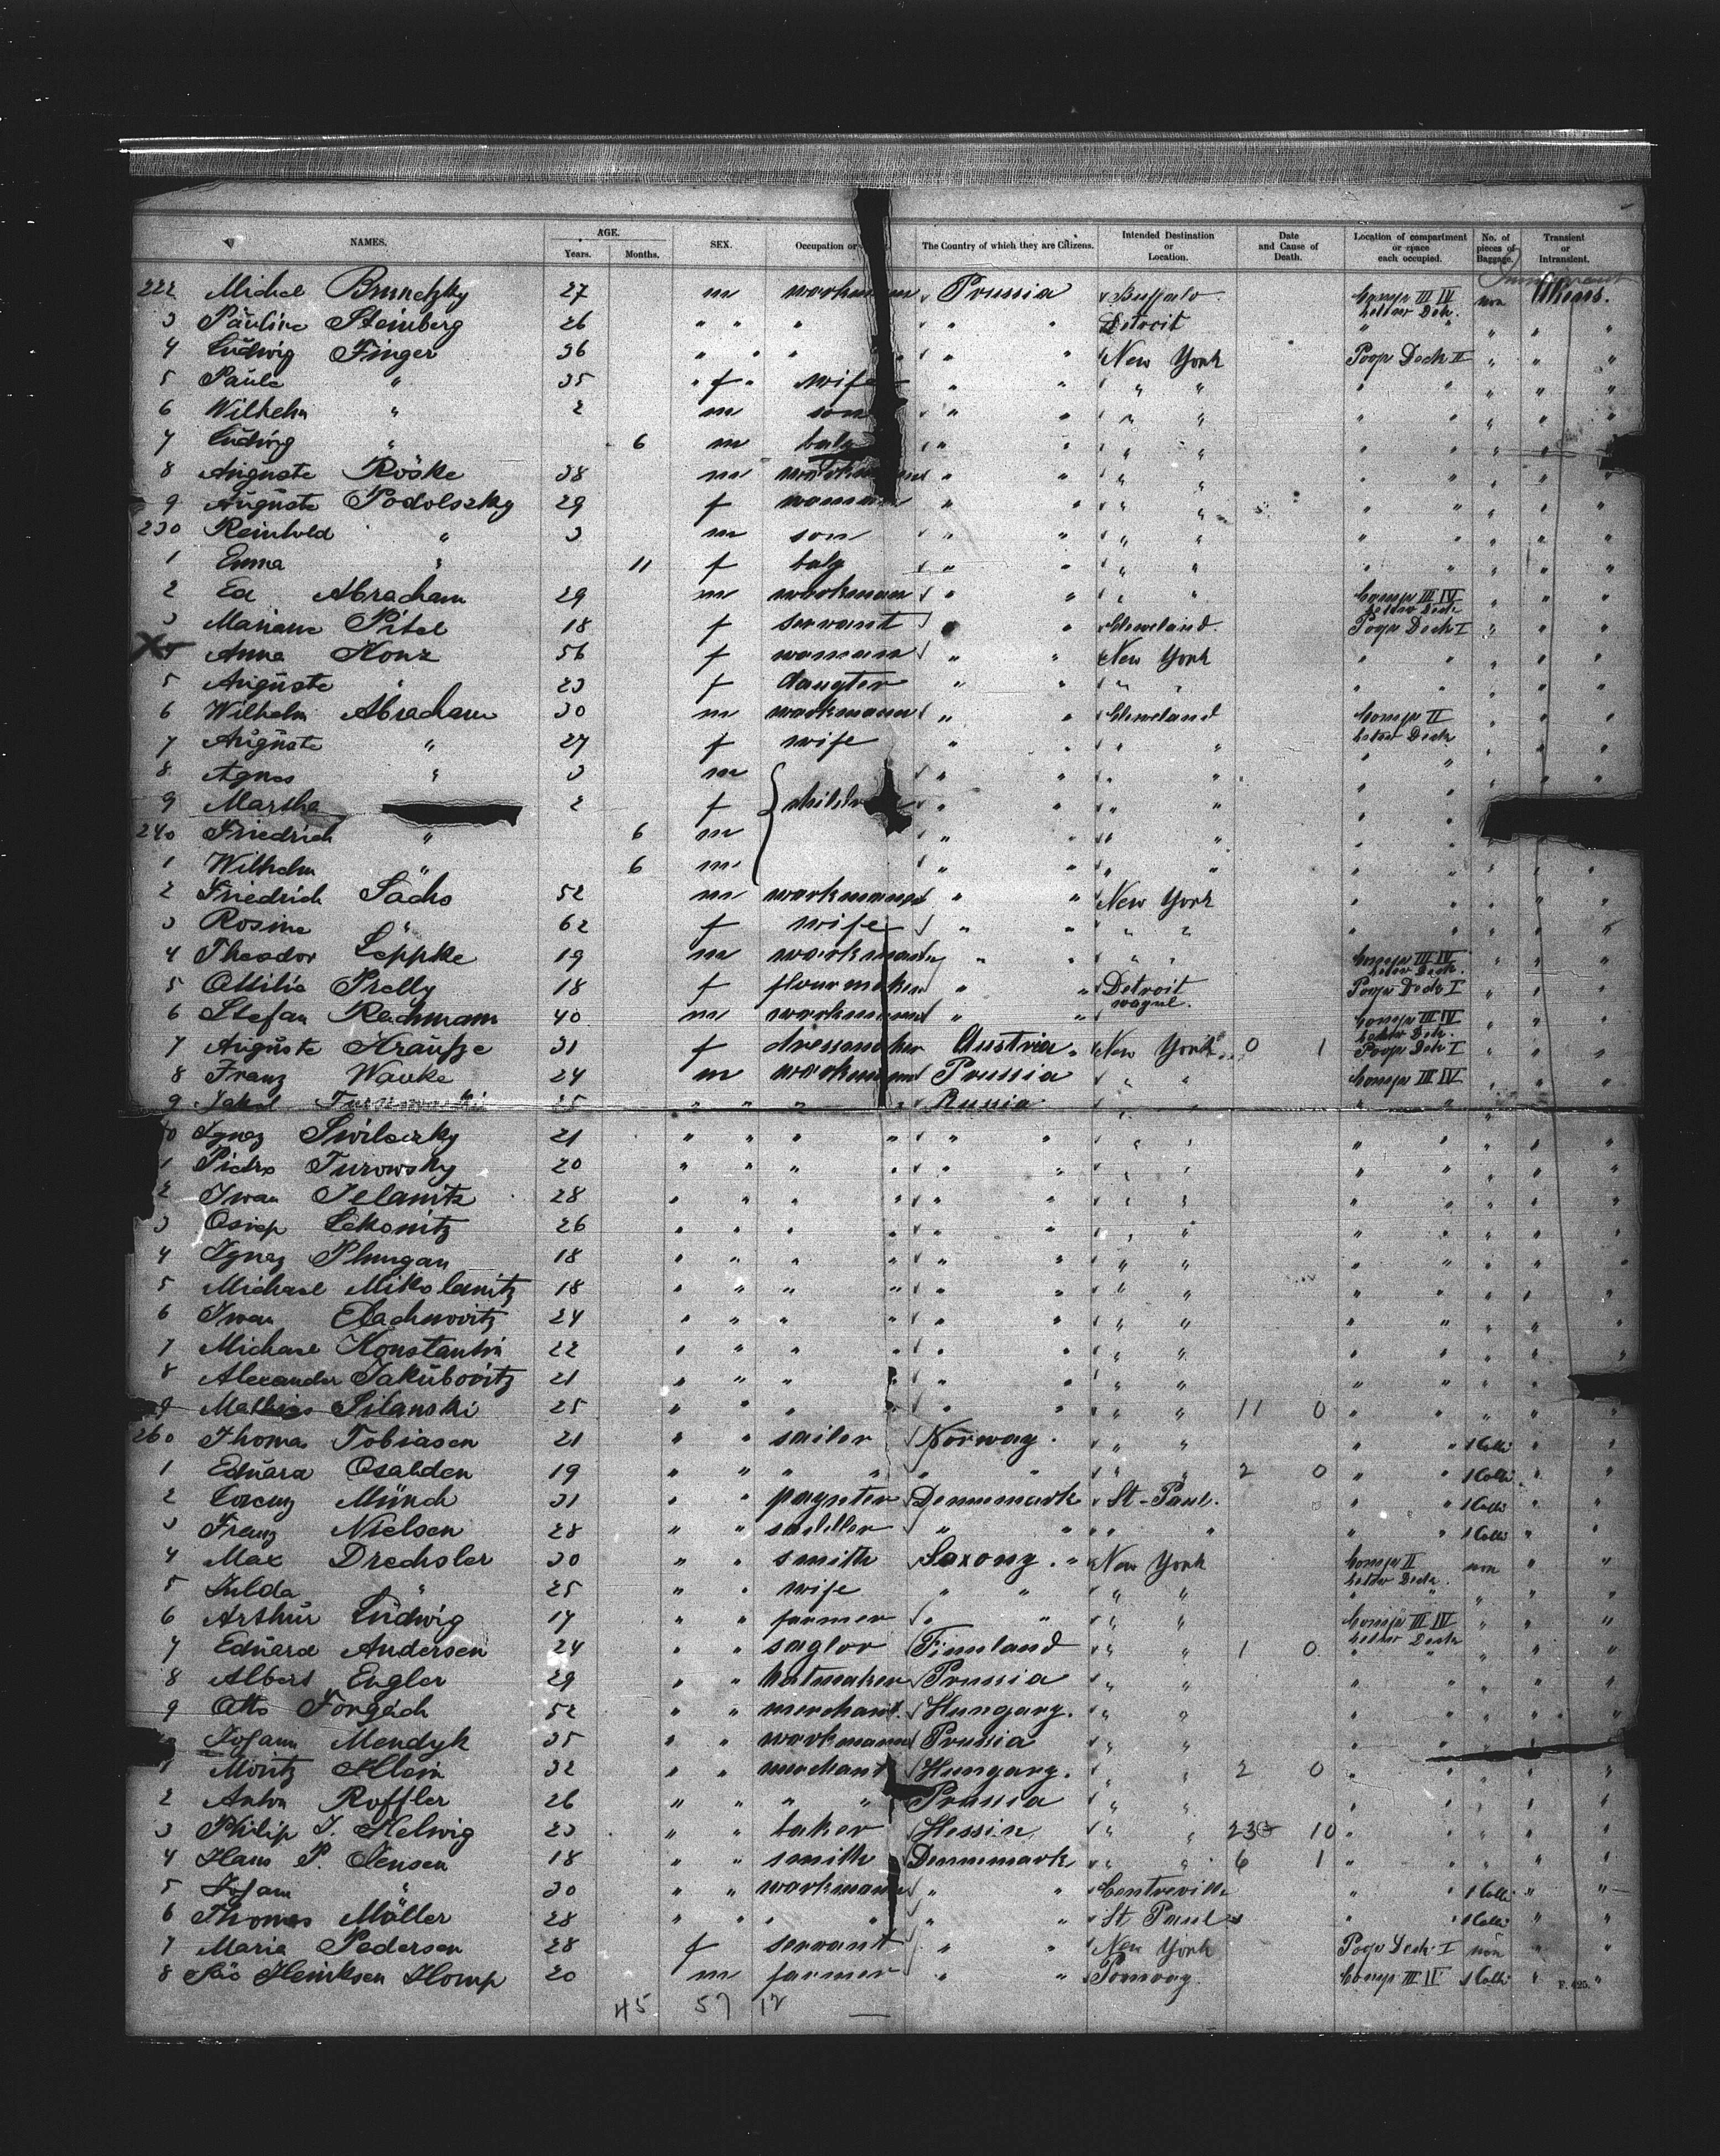 NAMES. AGE. Years. Months. SEX. Occupation or The Country of which they are Citizens. Intended Destination or Location. Date and Cause of Death. Location of compartment or space each occupied. No. of pieces of Baggage. Transient or Intransient.
222 Michel Brunetzky 27 m workmann Prussia Buffalo Comp III IV betw Deck. non
3 Pauline Steinberg 26 " " " " " Detroit " " " " "
4 Ludwig Finger 36 " " " " " New York Poop Deck II " " "
5 Paula " 35 " f " wife " " " " " " " " "
6 Wilhelm " 2 m son " " " " " " " " "
7 Ludwig " 6 m baby " " " " " " " " "
8 Auguste Röske 38 m workmann " " " " " " " " "
9 Auguste Podolszky 29 f woman " " " " " " " " "
230 Reinhold " 3 m son " " " " " " " " "
1 Emma " 11 f baby " " " " " " " " "
2 Ed Abracham 29 m workman " " " " Comp III IV betw Deck " " "
3 Mariane Pital 18 f servant " " Cleveland. Poop Deck I " " "
Anna Konz 56 f womann " " New York " " " " "
5 Auguste " 23 f daugter " " " " " " " " "
6 Wilhelm Abracham 30 m workmann " " Cleveland Comp II betw Deck " " "
7 Auguste " 27 f wife " " " " " " " "
8 Agnes " 3 m " " " " " " " " "
9 Martha 2 f " " " " " "
240 Friedrich " 6 m " " " " " "
1 Wilhelm " 6 m " " " " " " " " "
2 Friedrich Sachs 52 m workmann " " New York " " " " "
3 Rosine " 62 f wife " " " " " " " " "
4 Theodor Leppke 19 m workmann " " " " Comp III IV betw Deck. " " "
5 Ottilie Prelly 18 f flourmaker " " Detroit Poop Deck I " " "
6 Stefan Rachmann 40 m workmann " " wayne. Comp III IV betw Deck. " " "
7 Auguste Krauße 31 f dressmaker Austria " New York 0 1 Poop Deck I " " "
8 Franz Wauke 24 m workmann Prussia " " Comp III IV " " "
9 25 " " " " Russia " " " " " " "
Ignaz 21 " " " " " " " " " " " " "
1 Piedro Turowsky 20 " " " " " " " " " " " " "
2 Iwan Jelanitz 28 " " " " " " " " " " " " "
3 Osiep Lekonitz 26 " " " " " " " " " " " " "
4 Ignaz Plungan 18 " " " " " " " " " " " " "
5 Michael Mikolanitz 18 " " " " " " " " " " " " "
6 Iwan 24 " " " " " " " " " " " " "
7 Michael Konstantin 22 " " " " " " " " " " " " "
8 Alexander Jakubovitz 21 " " " " " " " " " " " " "
9 Mathias Silanski 25 " " " " " " " " 11 0 " " " " "
260 Thomas Tobiasen 21 " " sailor Norway. " " " " 1 Colli " "
1 Eduard Osalden 19 " " " " " " " " 2 0 " " 1 Colli " "
2 Lorenz Münch 31 " " paynter Dennemark St-Paul. " " 1 Colli " "
3 Franz Nielsen 28 " " saddler " " " " " " 1 Colli " "
4 Max Drechsler 30 " " smith Saxony. " New York Comp II betw Deck. non " "
5 Hulda " 25 " " wife " " " " " " " " "
6 Arthur Ludwig 17 " " farmer " " " " Comp III IV betw Deck " " "
7 Eduard Andersen 24 " " saylor Finnland " " 1 0 " " " " "
8 Albert Engler 29 " " hatmaker Prussia " " " " " " "
9 Otto Forgách 52 " " merchant. Hungary. " " " " " " "
Johann Mendyk 35 " " workmann Prussia " " " " " " "
1 Moritz Klein 32 " " merchant Hungary. " " 2 0 " " " " "
2 Anton Roffler 26 " " " " Prussia " " " " " " "
3 Philip J. Helwig 23 " " baker Hessin " " 10 " " " " "
4 Hans P. Jensen 18 " " smith Dennemark " " 6 1 " " " " "
5 Johann " 30 " " workmann " " Centreville " " 1 Colli " "
6 Thomas Möller 28 " " " " " " St Paul " " 1 Colli " "
7 Maria Pedersen 28 f servant " " New York Poop Deck I non " "
8 Henriksen 20 m farmer " " Comp III IV 1 Colli " "
F. 425.
45 57 12